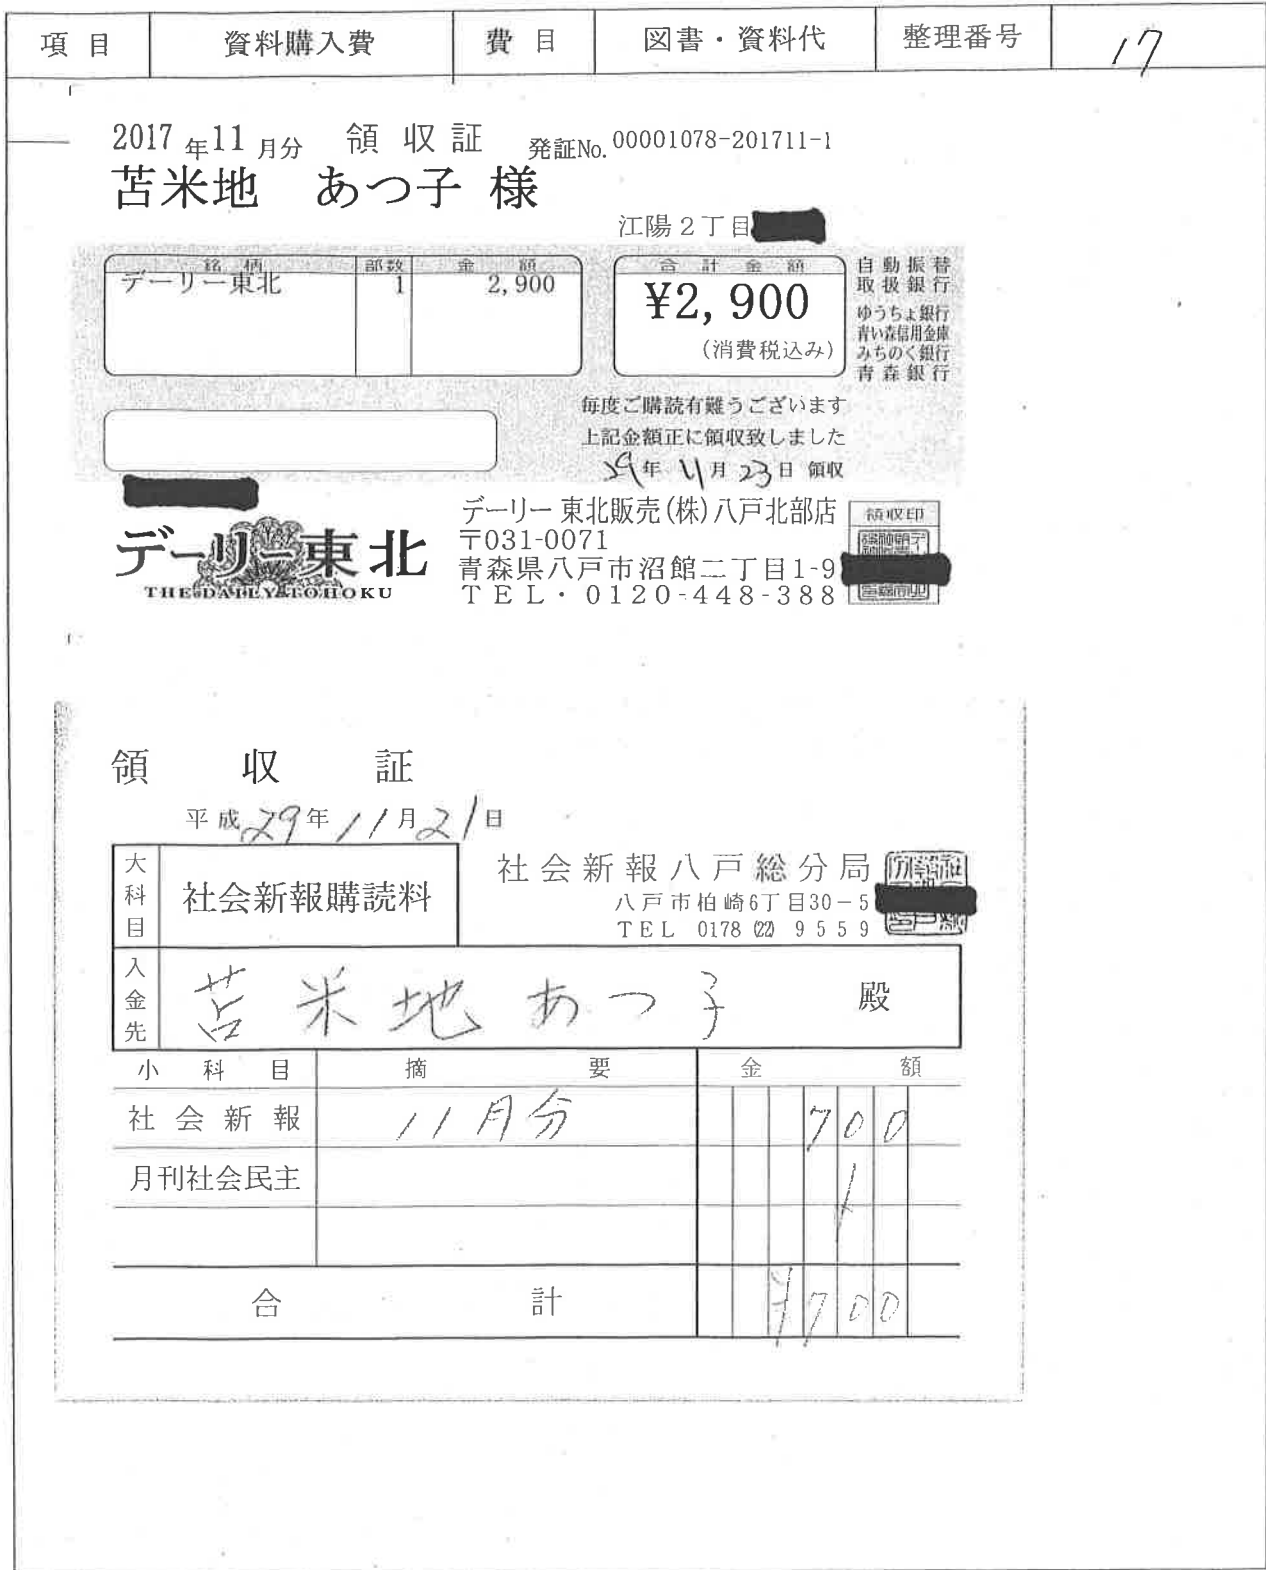 項目 資料購入費 費目 図書・資料代 整理番号 17
2017年11月分 領収証 発証No.00001078-201711-1
苫米地 あつ子 様
江陽2丁目
銘柄 部数 金額
デーリー東北 1 2,900
合計金額
¥2,900
(消費税込み)
自動振替
取扱銀行
ゆうちょ銀行
青い森信用金庫
みちのく銀行
青森銀行
毎度ご購読有難うございます
上記金額正に領収致しました
29年11月23日 領収
デーリー東北
THE DAILY TOHOKU
デーリー東北販売(株)八戸北部店
〒031-0071
青森県八戸市沼館二丁目1-9
TEL・0120-448-388
領収印
領収証
平成29年11月21日
大科目 社会新報購読料
社会新報八戸総分局
八戸市柏崎6丁目30-5
TEL 0178(22)9559
入金先 苫米地あつ子 殿
小科目 摘要 金額
社会新報 11月分 700
月刊社会民主
合計 ¥700